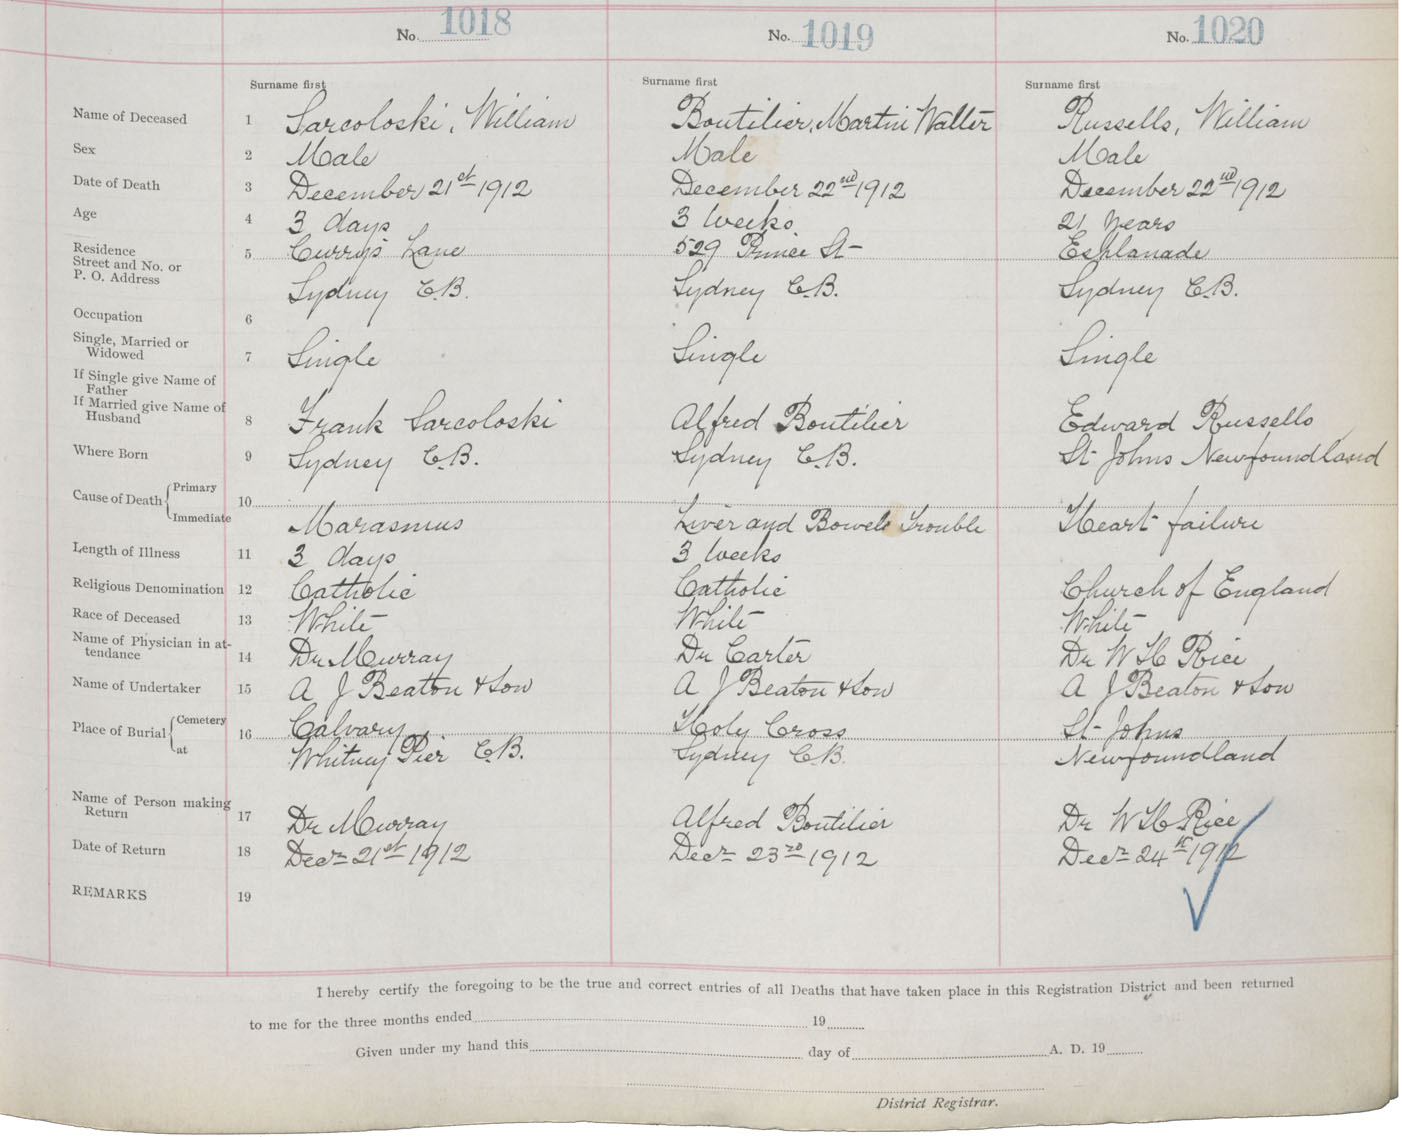 No. 1018 No. 1019 No. 1020
Surname first Surname first Surname first
Name of Deceased 1 Sarcoloski, William Boutilier, Martin Walter Russells, William
Sex 2 Male Male Male
Date of Death 3 December 21st 1912 December 22nd 1912 December 22nd 1912
Age 4 3 days 3 weeks 21 years
Residence
Street and No. or 5 Currys Lane 529 Prince St Esplanade
P. O. Address Sydney C.B. Sydney C.B. Sydney C.B.
Occupation 6
Single, Married or
Widowed 7 Single Single Single
If Single give Name of
Father
If Married give Name of
Husband 8 Frank Sarcoloski Alfred Boutilier Edward Russells
Where Born 9 Sydney C.B. Sydney C.B. St Johns Newfoundland
Cause of Death Primary 10
Immediate Marasmus Liver and Bowels Trouble Heart failure
Length of Illness 11 3 days 3 weeks
Religious Denomination 12 Catholic Catholic Church of England
Race of Deceased 13 White White White
Name of Physician in at-
tendance 14 Dr Murray Dr Carter Dr W H Rice
Name of Undertaker 15 A J Beaton & Son A J Beaton & Son A J Beaton & Son
Place of Burial Cemetery 16 Calvary Holy Cross St Johns
at Whitney Pier C.B. Sydney C.B. Newfoundland
Name of Person making
Return 17 Dr Murray Alfred Boutilier Dr W H Rice
Date of Return 18 Decr 21st 1912 Decr 23rd 1912 Decr 24th 1912
REMARKS 19
I hereby certify the foregoing to be the true and correct entries of all Deaths that have taken place in this Registration District and been returned
to me for the three months ended 19
Given under my hand this day of A. D. 19
District Registrar.